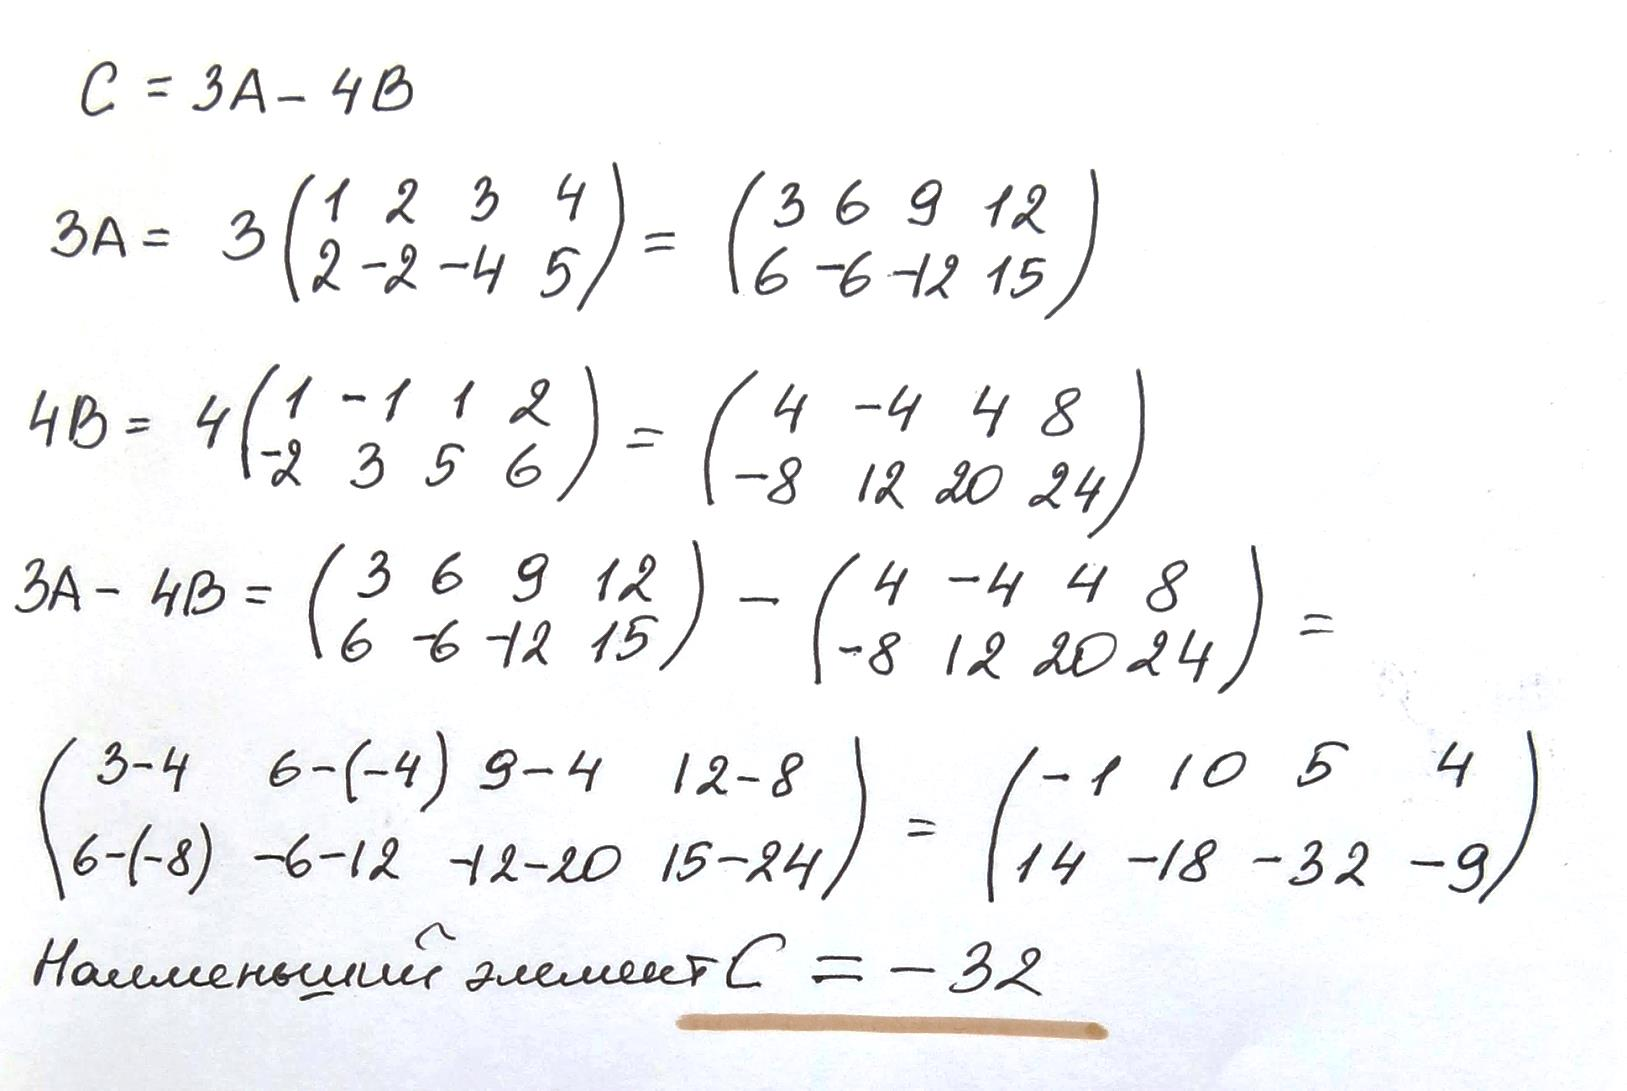 C = 3A - 4B
3A = 3 (1 2 3 4
2 -2 -4 5) = (3 6 9 12
6 -6 -12 15)
4B = 4 (1 -1 1 2
-2 3 5 6) = (4 -4 4 8
-8 12 20 24)
3A - 4B = (3 6 9 12
6 -6 -12 15) - (4 -4 4 8
-8 12 20 24) =
(3-4 6-(-4) 9-4 12-8
6-(-8) -6-12 -12-20 15-24) = (-1 10 5 4
14 -18 -32 -9)
Наименьший элемент C = -32